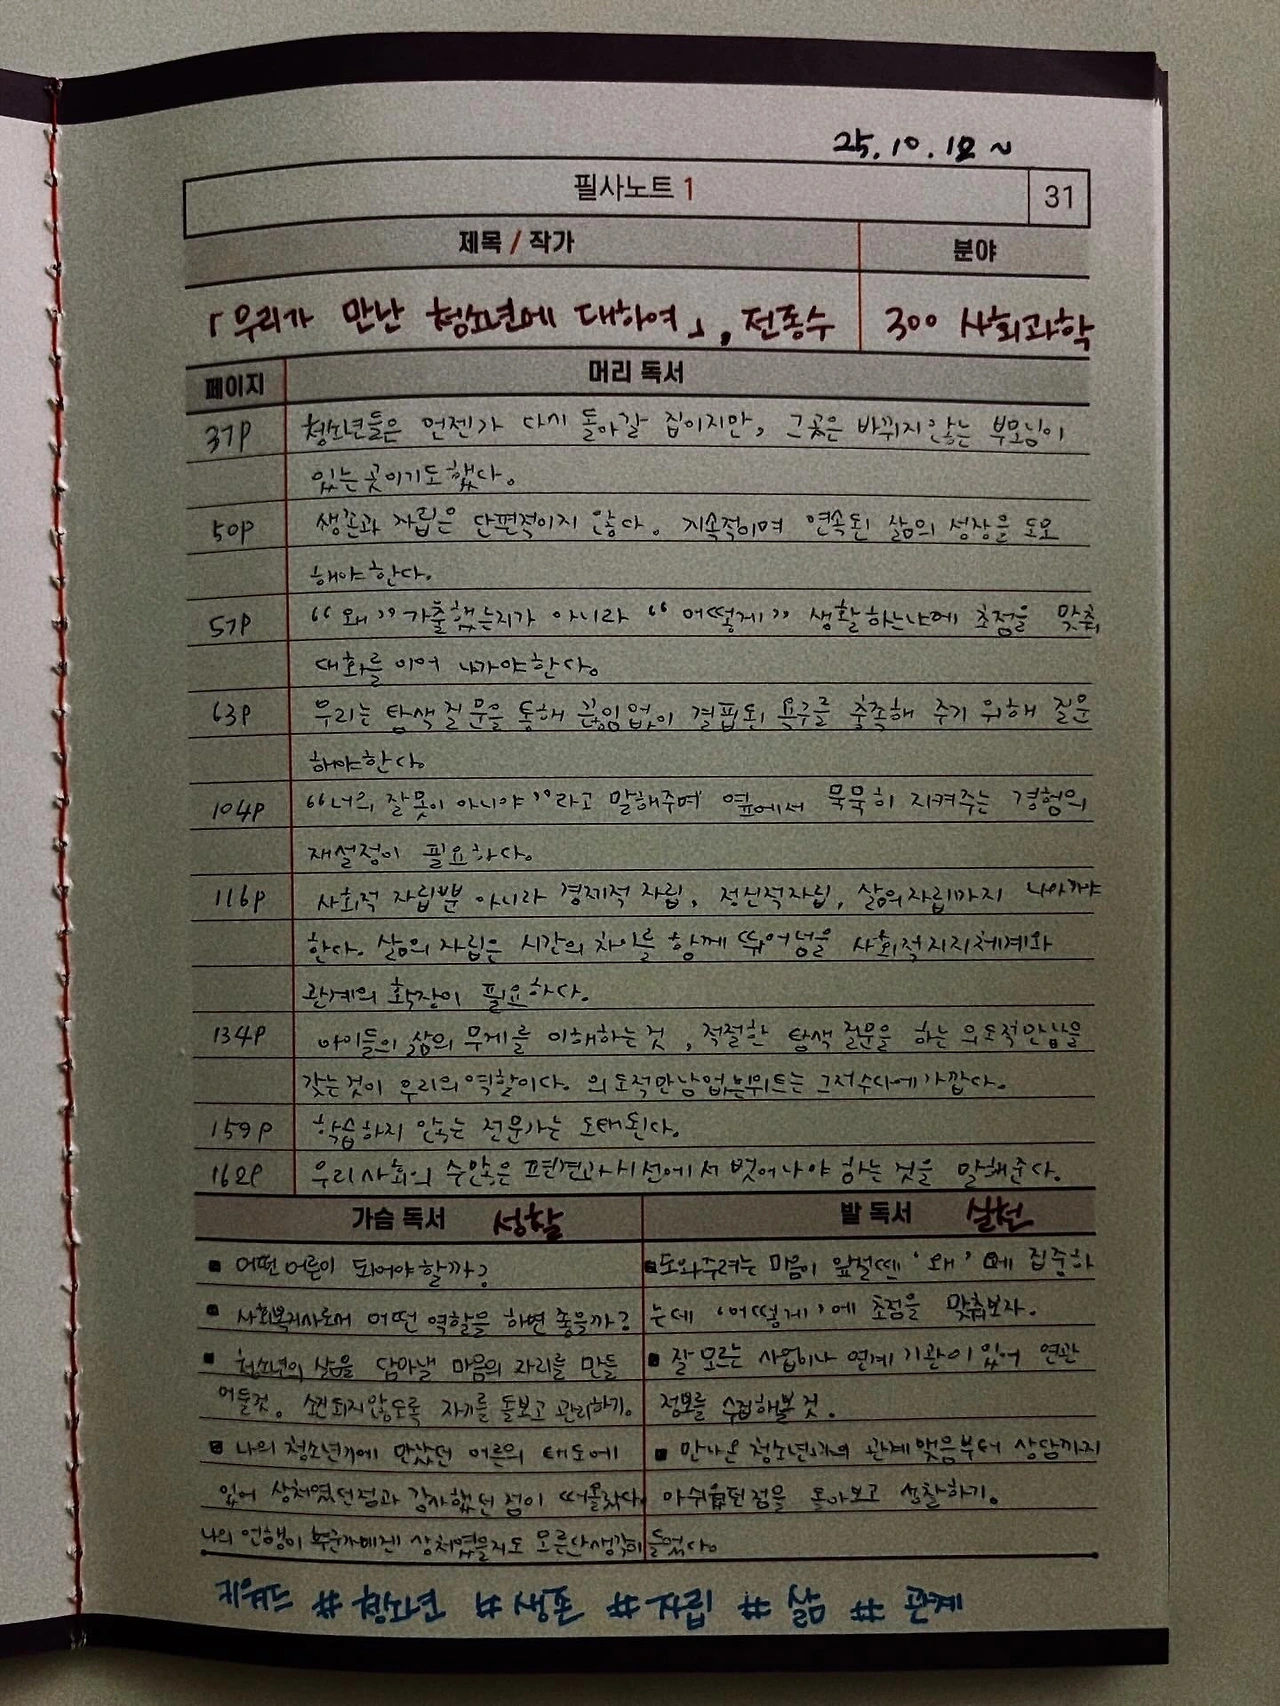 25.10.12 ~
필사노트 1 31
제목 / 작가 분야
「우리가 만난 청소년에 대하여」, 전종수 300 사회과학
페이지 머리 독서
37P 청소년들은 언젠가 다시 돌아갈 집이지만, 그곳은 바뀌지 않는 부모님이
있는 곳이기도 했다.
50P 생존과 자립은 단편적이지 않다. 지속적이며 연속된 삶의 성장을 도모
해야 한다.
57P “왜” 가출했는지가 아니라 “어떻게” 생활하는냐에 초점을 맞춰
대화를 이어 나가야 한다.
63P 우리는 탐색 질문을 통해 끊임없이 결핍된 욕구를 충족해 주기 위해 질문
해야 한다.
104P “너의 잘못이 아니야”라고 말해주며 옆에서 묵묵히 지켜주는 경험의
재설정이 필요하다.
116P 사회적 자립뿐 아니라 경제적 자립, 정신적 자립, 삶의 자립까지 나아가야
한다. 삶의 자립은 시간의 차이를 함께 뛰어넘을 사회적 지지체계와
관계의 확장이 필요하다.
134P 아이들의 삶의 무게를 이해하는 것, 적절한 탐색 질문을 하는 의도적 만남을
갖는 것이 우리의 역할이다. 의도적 만남 없는 위트는 그저 수다에 가깝다.
159P 학습하지 않는 전문가는 도태된다.
162P 우리 사회의 수많은 편견과 시선에서 벗어나야 하는 것을 말해준다.
가슴 독서 성찰 발 독서 실천
▪ 어떤 어른이 되어야 할까?
▪ 사회복지사로서 어떤 역할을 하면 좋을까?
▪ 청소년의 삶을 담아낼 마음의 자리를 만들
어둘것. 소진되지 않도록 자기를 돌보고 관리하기.
▪ 나의 청소년기에 만났던 어른의 태도에
있어 상처였던 점과 감사했던 점이 떠올랐다.
나의 언행이 누군가에겐 상처였을지도 모른단 생각이 들었다.
▪ 도와주려는 마음이 앞설땐 ‘왜’에 집중하
는데 ‘어떻게’에 초점을 맞춰보자.
▪ 잘 모르는 사업이나 연계 기관이 있어 연관
정보를 수집해볼 것.
▪ 만나온 청소년과의 관계 맺음부터 상담까지
아쉬웠던 점을 돌아보고 성찰하기.
키워드 # 청소년 # 생존 # 자립 # 삶 # 관계